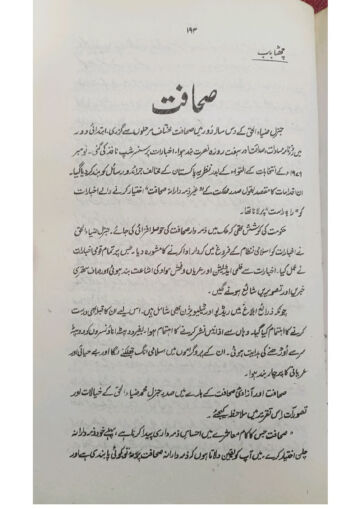 ۱۹۳
چھٹا باب
صحافت
جنرل ضیاء الحق کے دس سالہ دور میں صحافت مختلف مرحلوں سے گزری، ابتدائی دور
میں روزنامہ مساوات، صداقت اور ہفت روزہ نصرت بند ہوا، اخبارات پر سنسر شپ نافذ کی گئی۔ نومبر
کے انتخابات کے التواء کے بعد نظریہ پاکستان کے مخالف جرائد و رسائل کو بند کر دیا گیا۔
ان اقدامات کا مقصد بقول صدر مملکت کے "غیر ذمہ دارانہ صحافت" اختیار کرنے والے اخبارات
کو "راہ راست" پر لانا تھا۔
حکومت کی کوشش تھی کہ ملک میں ذمہ دار صحافت کی حوصلہ افزائی کی جائے۔ جنرل ضیاء الحق
نے اخبارات کو اسلامی نظام کے فروغ میں کردار ادا کرنے کا مشورہ دیا۔ جس پر تمام قومی اخبارات
نے عمل کیا۔ اخبارات سے فلمی ایڈیشن اور عریاں و فحش مواد کی اشاعت بند ہوئی اور صاف ستھری
خبریں اور تصویریں شائع ہونے لگیں۔
چونکہ ذرائع ابلاغ میں ریڈیو اور ٹیلیویژن بھی شامل ہیں۔ اس لیے ان کا قبلہ بھی درست
کرنے کا اہتمام کیا گیا۔ وہاں سے اذانیں نشر کرنے کا اہتمام ہوا۔ نیوز ریڈر و اناؤنسروں کو دوپٹہ
سر سے اوڑھنے کی ہدایت ہوئی۔ ان کے پروگراموں میں اسلامی رنگ جھلکنے لگا اور بے حیائی اور
عریانی کا پرچار بند ہوا۔
صحافت اور آزادی صحافت کے بارے میں صدر جنرل محمد ضیاء الحق کے خیالات اور
تصورات اس تقریر میں ملاحظہ کیجئے۔
"صحافت جس کا کام معاشرے میں احساس ذمہ داری پیدا کرنا ہے، پہلے خود ذمہ دارانہ
چلن اختیار کرے، میں آپ کو یقین دلاتا ہوں کہ ذمہ دارانہ صحافت پر نہ تو کوئی پابندی ہے اور